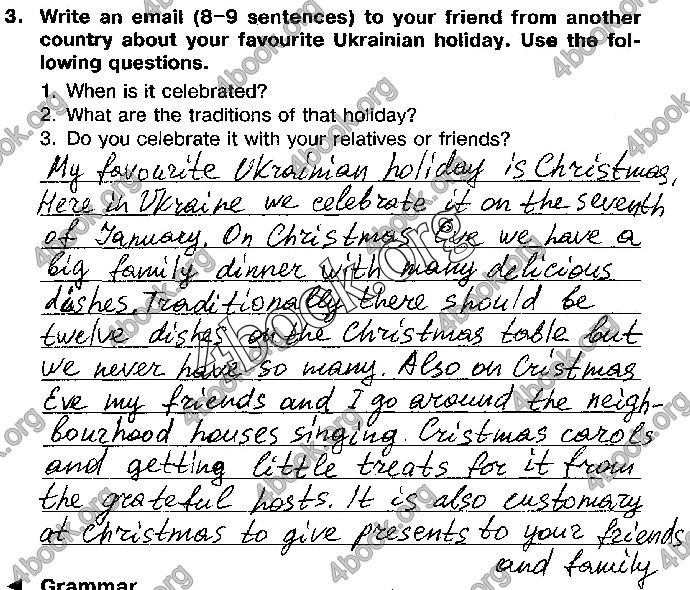 3. Write an email (8–9 sentences) to your friend from another
country about your favourite Ukrainian holiday. Use the fol-
lowing questions.
1. When is it celebrated?
2. What are the traditions of that holiday?
3. Do you celebrate it with your relatives or friends?
My favourite Ukrainian holiday is Christmas.
Here in Ukraine we celebrate it on the seventh
of January. On Christmas Eve we have a
big family dinner with many delicious
dishes. Traditionally there should be
twelve dishes on the Christmas table but
we never have so many. Also on Cristmas
Eve my friends and I go around the neigh-
bourhood houses singing Cristmas carols
and getting little treats for it from
the grateful hosts. It is also customary
at Christmas to give presents to your friends
and family
Grammar
4book.org